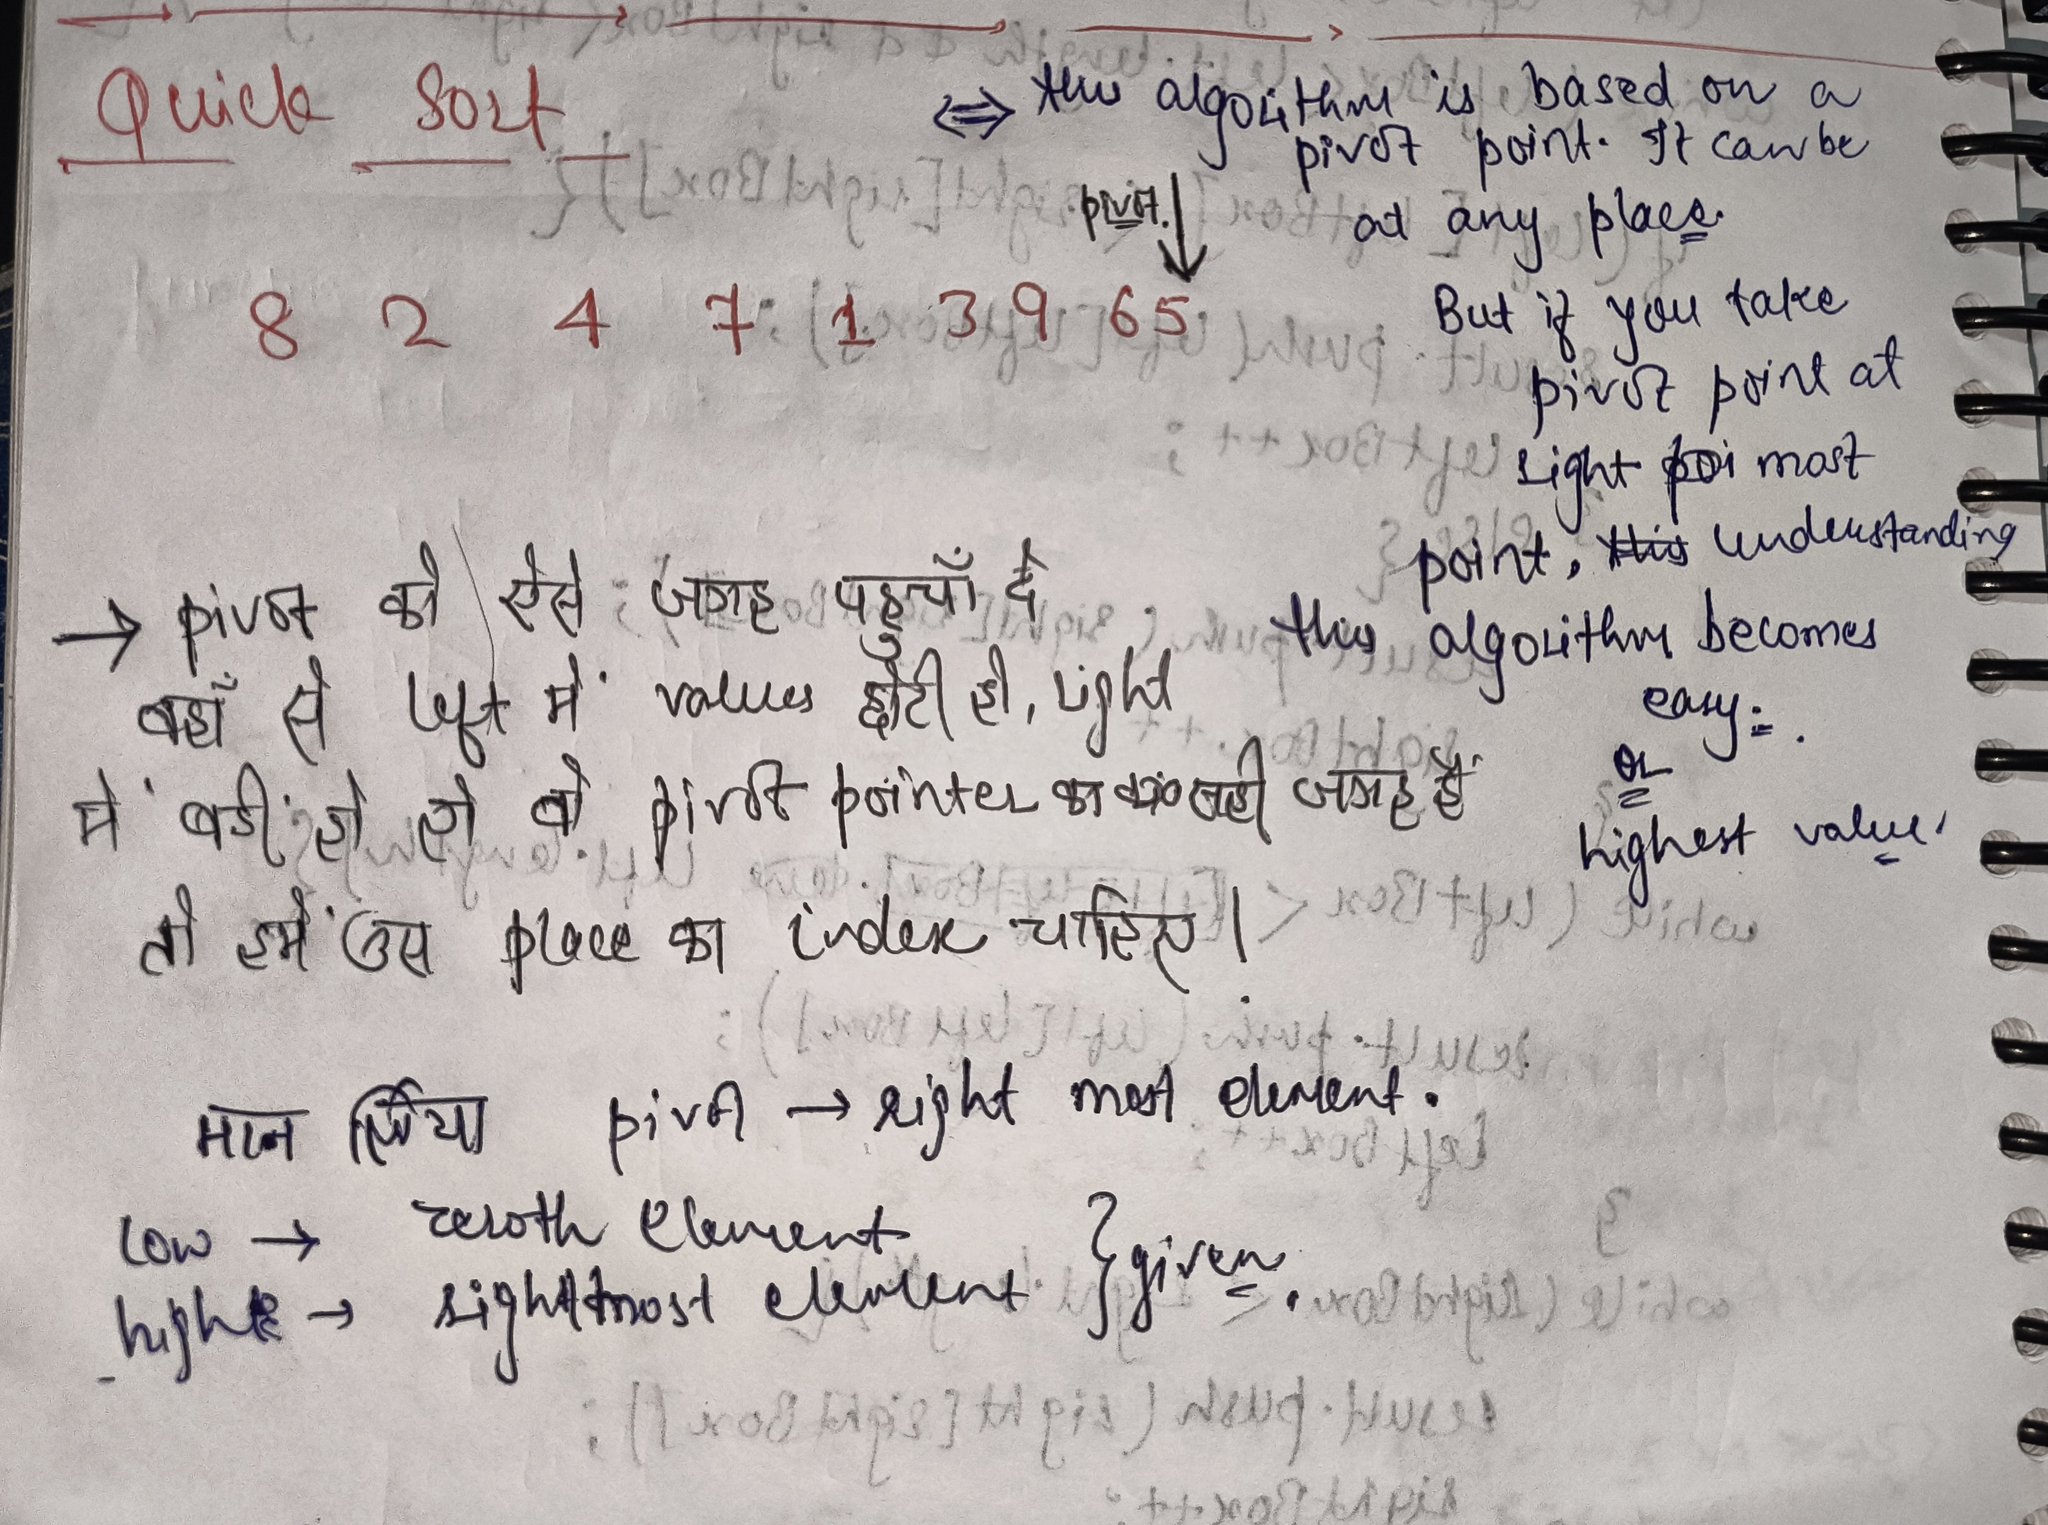 Quick Sort
⇔ this algorithm is based on a
pivot point. It can be
at any place.
pivot.
8 2 4 7 1 3 9 6 5
But if you take
pivot point at
right poi most
point, this understanding
this algorithm becomes
easy.
or
highest value.
→ pivot को ऐसे जगह पहुचाँ दे
वहाँ से left में values छोटी हो, right
में बडी हो तो वो pivot pointer का सही जगह हैं
तो हमें उस place का index चाहिए।
मान लिया pivot → right most element.
low → zeroth element
high → rightmost element } given.